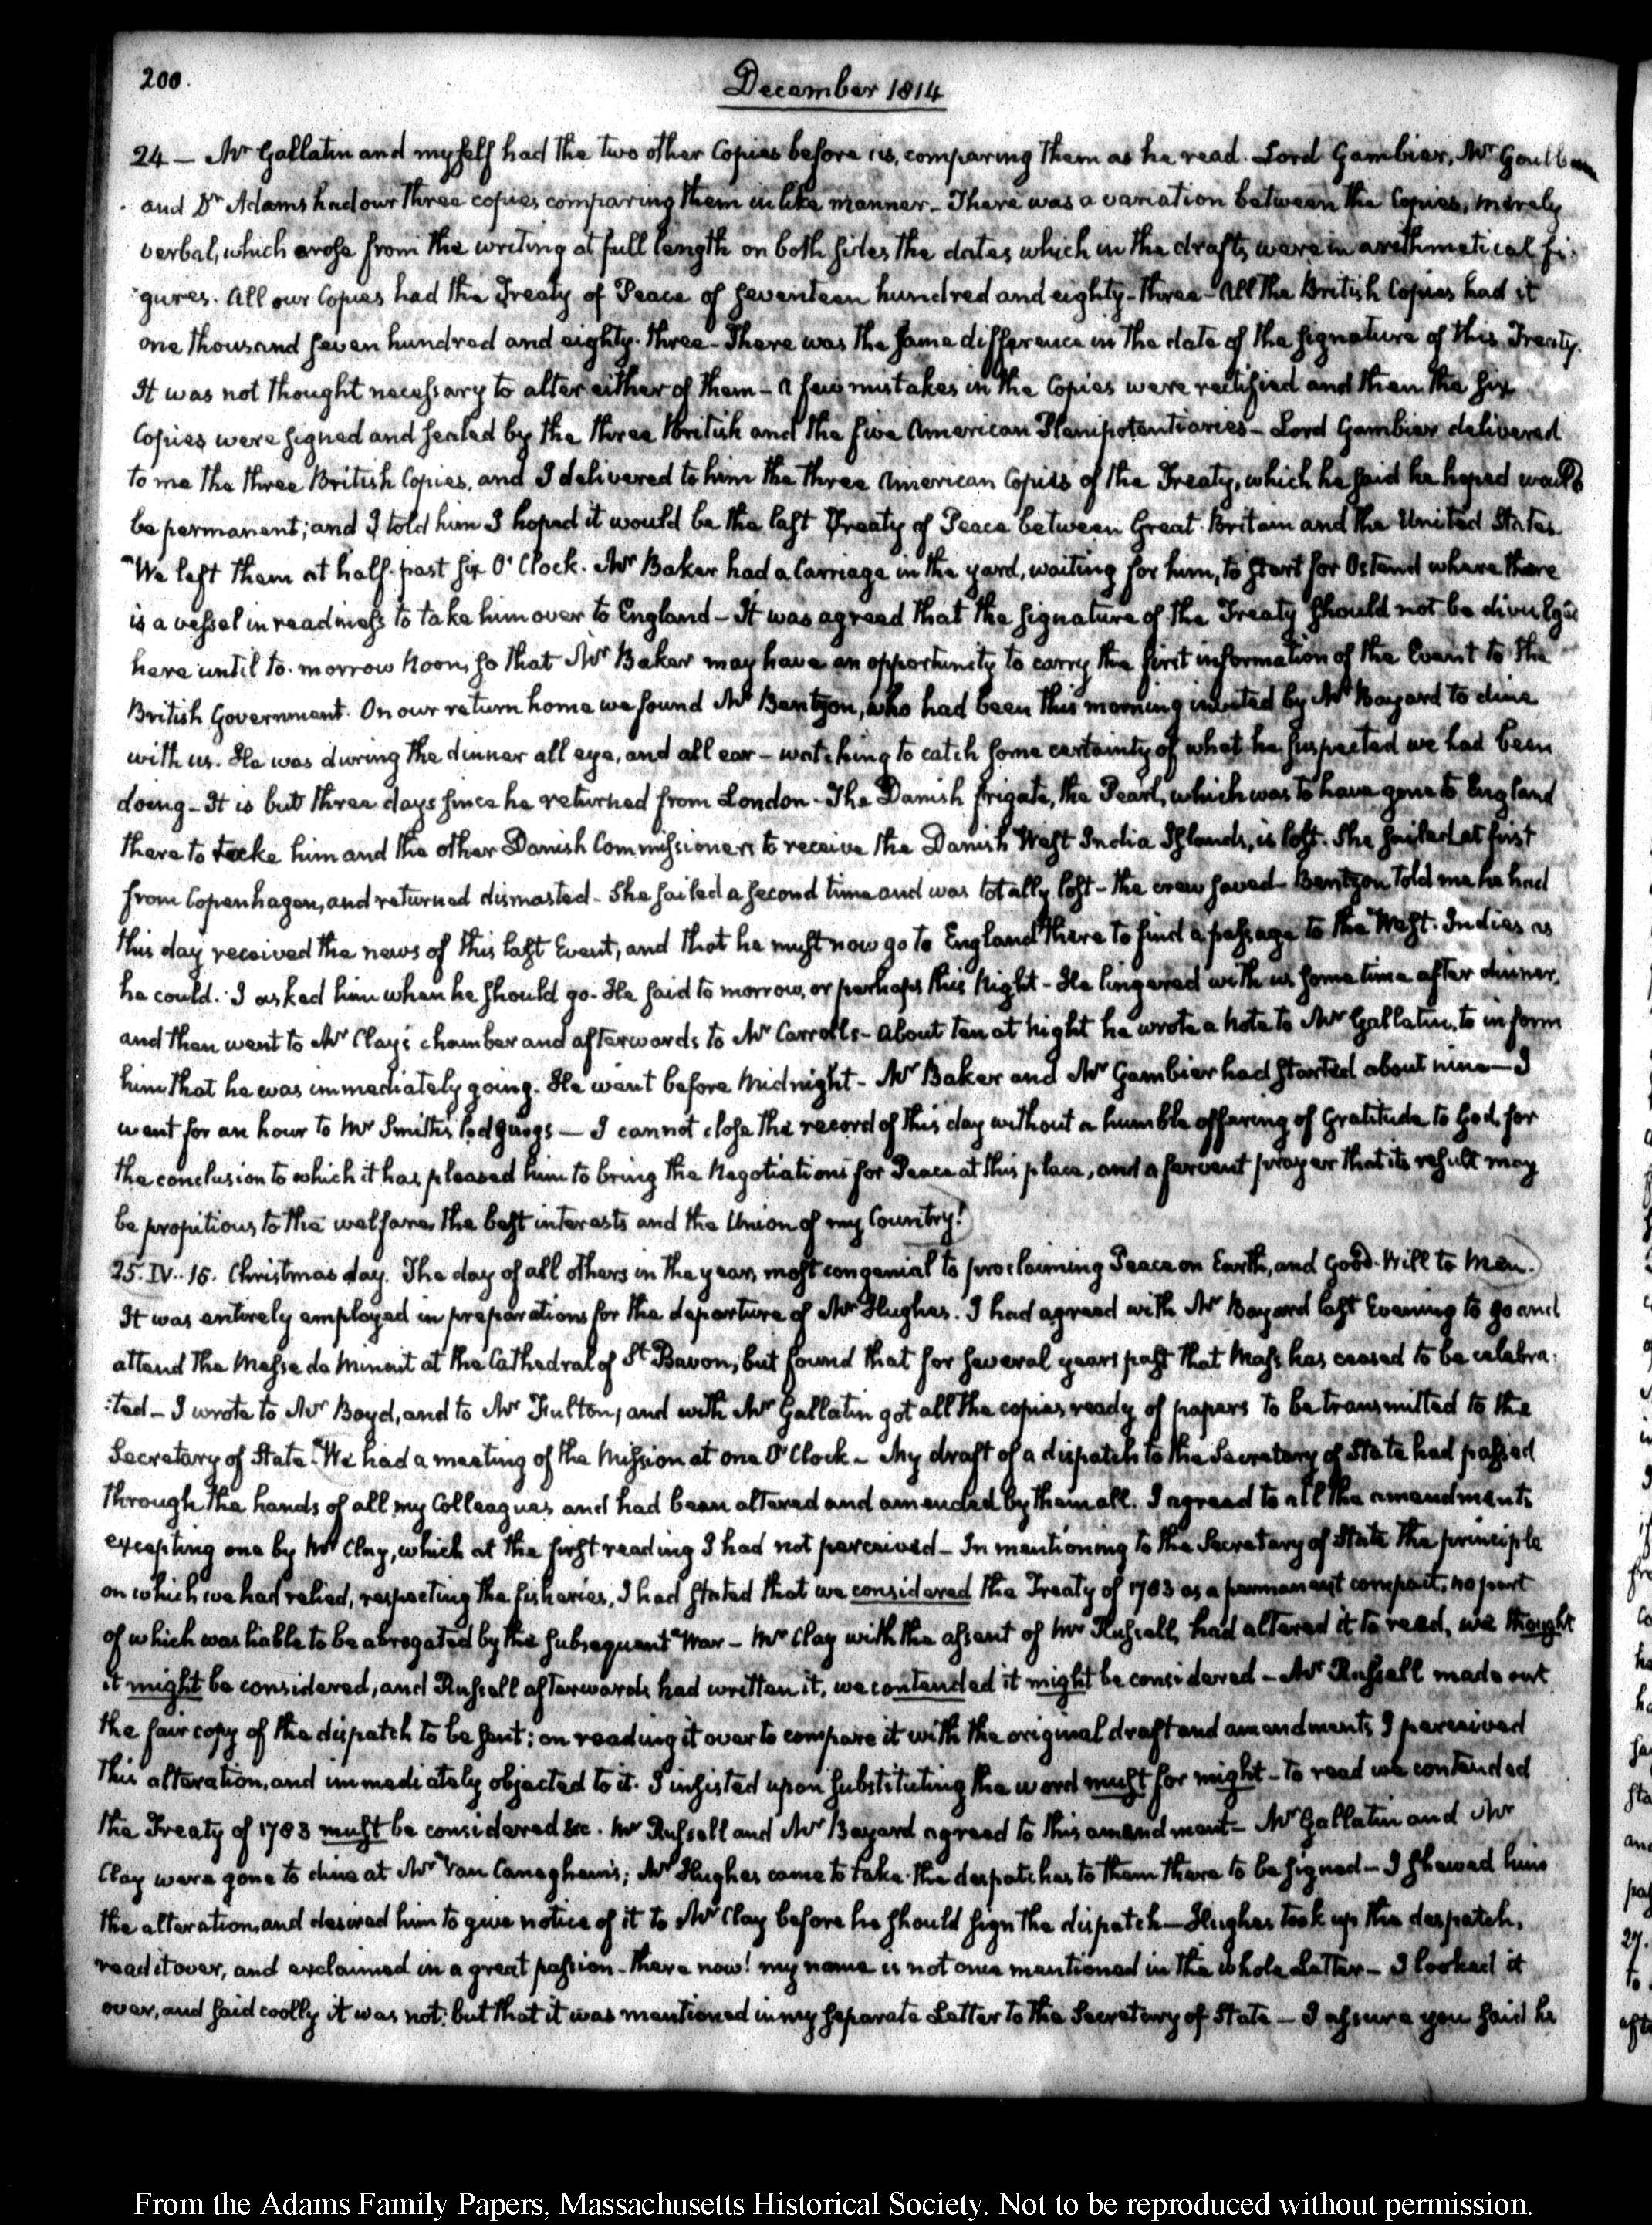 200.
December 1814
24 — Mr Gallatin and myself had the two other Copies before us, comparing them as he read. Lord Gambier, Mr Goulburn
and Dr Adams had our three copies comparing them in like manner - There was a variation between the Copies, merely
verbal, which arose from the writing at full length on both sides the dates which in the drafts were in arithmetical fi-
gures. All our Copies had the Treaty of Peace of seventeen hundred and eighty-three - All the British Copies had it
one thousand seven hundred and eighty-three - There was the same difference in the date of the signature of this Treaty.
It was not thought necessary to alter either of them - a few mistakes in the Copies were rectified and then the six
Copies were signed and sealed by the three British and the five American Plenipotentiaries - Lord Gambier delivered
to me the three British Copies, and I delivered to him the three American Copies of the Treaty, which he said he hoped would
be permanent; and I told him I hoped it would be the last Treaty of Peace between Great-Britain and the United States.
We left them at half-past six O'Clock. Mr Baker had a Carriage in the yard, waiting for him, to start for Ostend where there
is a vessel in readiness to take him over to England - It was agreed that the signature of the Treaty should not be divulged
here until to-morrow Noon, so that Mr Baker may have an opportunity to carry the first information of the Event to the
British Government. On our return home we found Mr Bentzon, who had been this morning invited by Mr Bayard to dine
with us. He was during the dinner all eye, and all ear - watching to catch some certainty of what he suspected we had been
doing - It is but three days since he returned from London - The Danish frigate, the Pearl, which was to have gone to England
there to take him and the other Danish Commissioners to receive the Danish West India Islands, is lost. She sailed at first
from Copenhagen, and returned dismasted - She sailed a second time and was totally lost - the crew saved - Bentzon told me he had
this day received the news of this last Event, and that he must now go to England there to find a passage to the West-Indies as
he could. I asked him when he should go - He said to morrow, or perhaps this Night - He lingered with us some time after dinner,
and then went to Mr Clay's chamber and afterwards to Mr Carroll's - About ten at night he wrote a note to Mr Gallatin, to inform
him that he was immediately going. He went before Midnight - Mr Baker and Mr Gambier had started about nine — I
went for an hour to Mr Smith's lodgings — I cannot close the record of this day without a humble offering of gratitude to God, for
the conclusion to which it has pleased him to bring the Negotiations for Peace at this place, and a fervent prayer that its result may
be propitious to the welfare, the best interests and the Union of my Country!
25. IV.. 15. Christmas day. The day of all others in the year, most congenial to proclaiming Peace on Earth, and Good-Will to Men.
It was entirely employed in preparations for the departure of Mr Hughes. I had agreed with Mr Bayard last Evening to go and
attend the Messe de Minuit at the Cathedral of St Bavon, but found that for several years past that Mass has ceased to be celebra-
:ted - I wrote to Mr Boyd, and to Mr Fulton; and with Mr Gallatin got all the copies ready of papers to be transmitted to the
Secretary of State. We had a meeting of the Mission at one O'Clock - My draft of a dispatch to the Secretary of State had passed
through the hands of all my Colleagues and had been altered and amended by them all. I agreed to all the amendments
excepting one by Mr Clay, which at the first reading I had not perceived - In mentioning to the Secretary of State the principle
on which we had relied, respecting the fisheries, I had stated that we considered the Treaty of 1783 as a permanent compact, no part
of which was liable to be abrogated by the subsequent War - Mr Clay with the assent of Mr Russell, had altered it to read, we thought
it might be considered, and Russell afterwards had written it, we contended it might be considered - Mr Russell made out
the fair copy of the dispatch to be sent; on reading it over to compare it with the original draft and amendments, I perceived
this alteration, and immediately objected to it. I insisted upon substituting the word must for might - to read we contended
the Treaty of 1783 must be considered &c. Mr Russell and Mr Bayard agreed to this amendment - Mr Gallatin and Mr
Clay were gone to dine at Mr Van Caneghem's; Mr Hughes came to take the despatches to them there to be signed - I shewed him
the alteration, and desired him to give notice of it to Mr Clay before he should sign the dispatch — Hughes took up the despatch,
read it over, and exclaimed in a great passion - there now! my name is not once mentioned in the whole Letter - I looked it
over, and said coolly it was not: but that it was mentioned in my separate Letter to the Secretary of State — I assure you said he
From the Adams Family Papers, Massachusetts Historical Society. Not to be reproduced without permission.